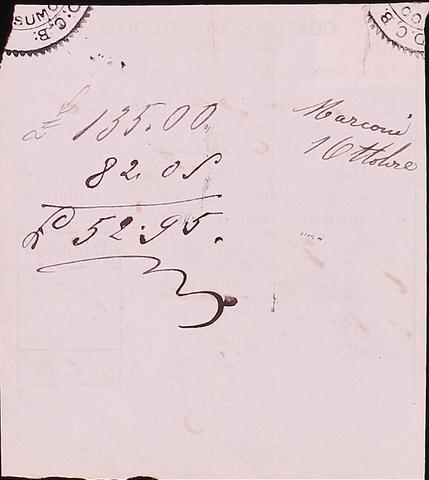 SUMO
D.C.B.
D.C.B.
CO
£ 135.00
82.05
£ 52.95.
Marconi
1 Ottobre